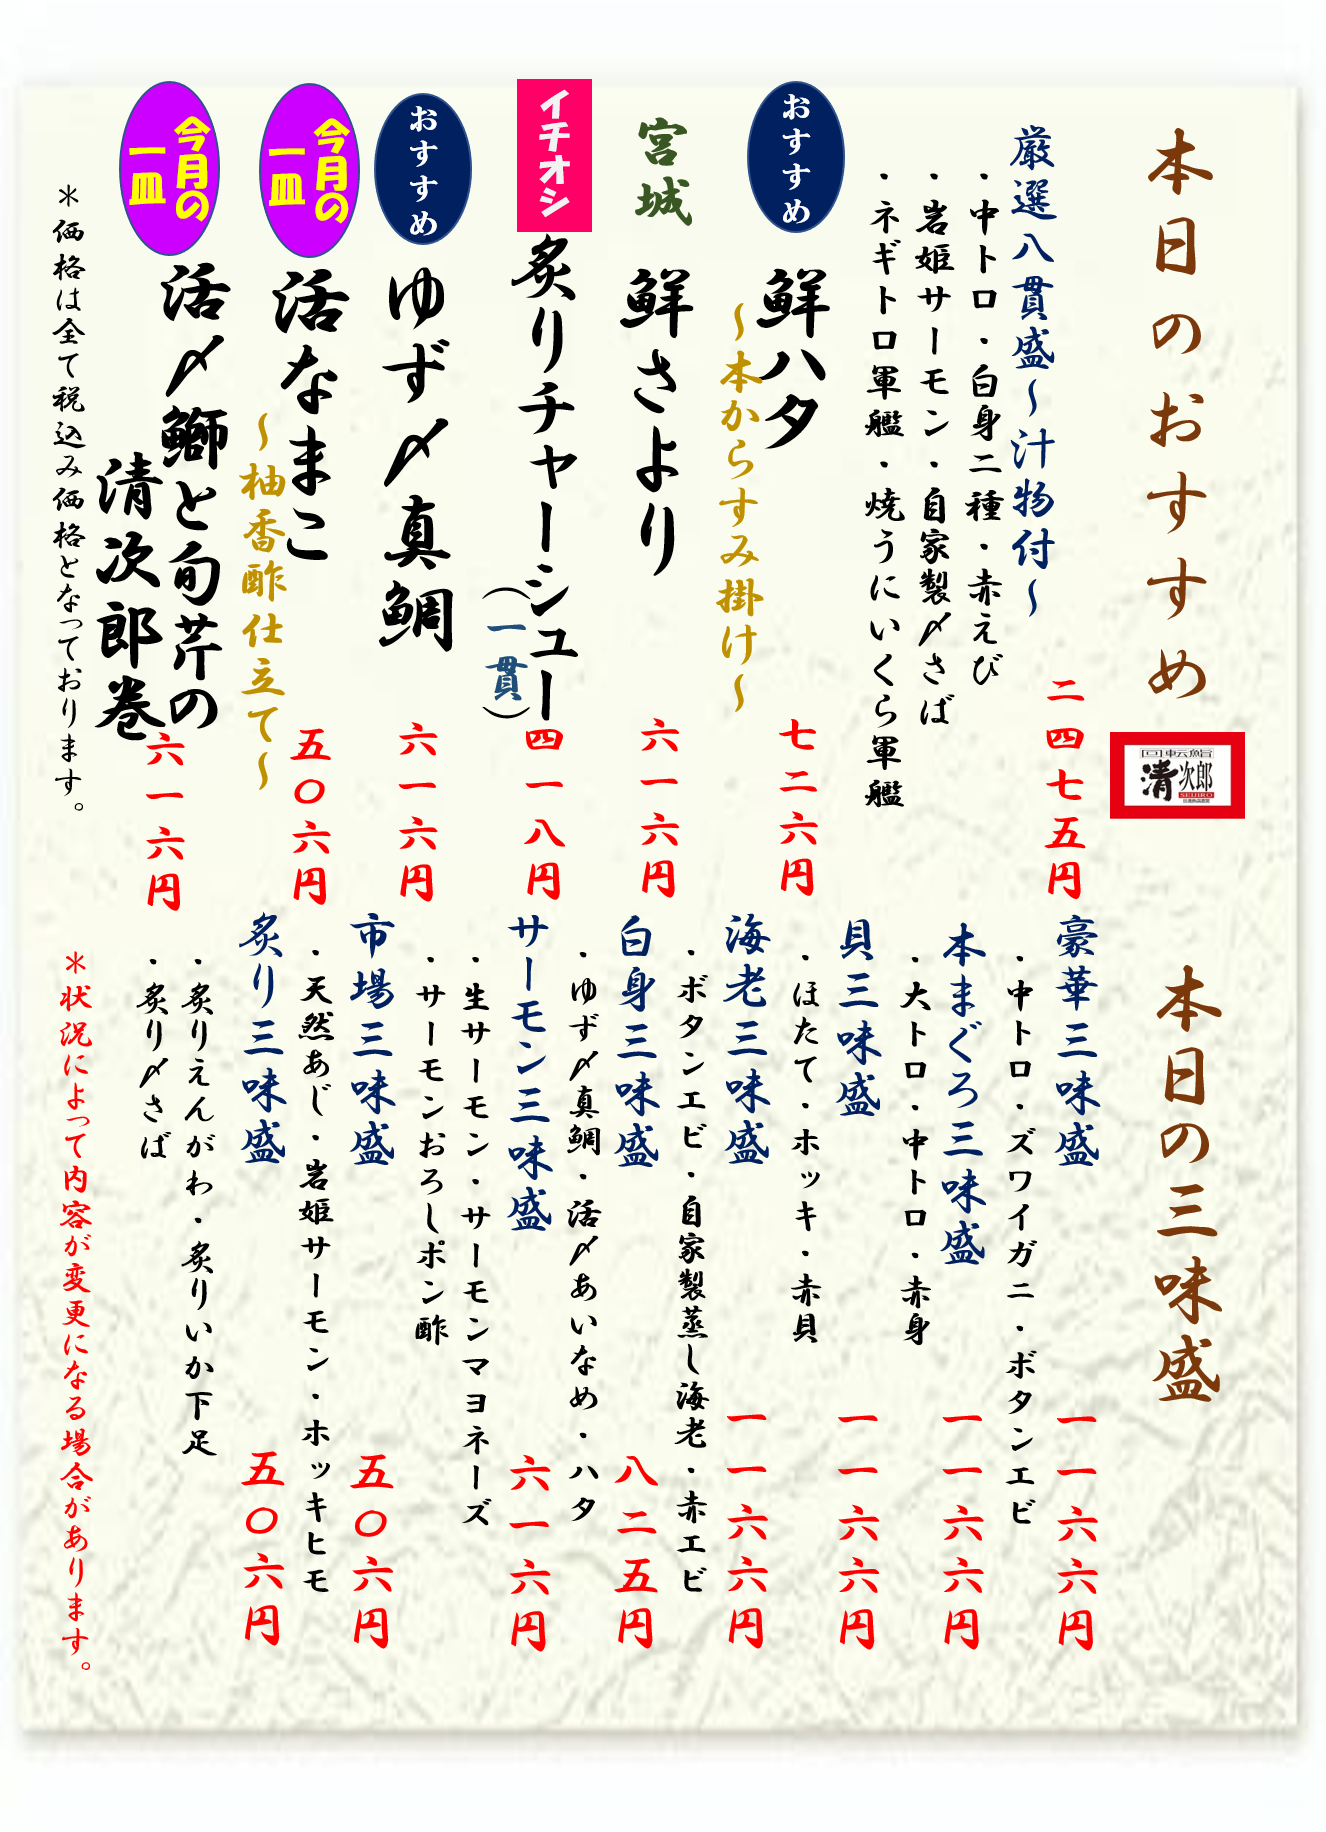 本日のおすすめ
回転鮨
清次郎
SEIJIRO
厳選八貫盛～汁物付～
二四七五円
・中トロ・白身二種・赤えび
・岩姫サーモン・自家製〆さば
・ネギトロ軍艦・焼うにいくら軍艦
おすすめ
鮮ハタ
～本からすみ掛け～
七二六円
宮城
鮮さより
六一六円
イチオシ
炙りチャーシュー
（一貫）
四一八円
おすすめ
ゆず〆真鯛
六一六円
今月の
一皿
活なまこ
～柚香酢仕立て～
五〇六円
今月の
一皿
活〆鰤と旬芹の
清次郎巻
六一六円
＊価格は全て税込み価格となっております。
本日の三味盛
豪華三味盛
一一六六円
・中トロ・ズワイガニ・ボタンエビ
本まぐろ三味盛
一一六六円
・大トロ・中トロ・赤身
貝三味盛
一一六六円
・ほたて・ホッキ・赤貝
海老三味盛
一一六六円
・ボタンエビ・自家製蒸し海老・赤エビ
白身三味盛
八二五円
・ゆず〆真鯛・活〆あいなめ・ハタ
サーモン三味盛
六一六円
・生サーモン・サーモンマヨネーズ
・サーモンおろしポン酢
市場三味盛
五〇六円
・天然あじ・岩姫サーモン・ホッキヒモ
炙り三味盛
五〇六円
・炙りえんがわ・炙りいか下足
・炙り〆さば
＊状況によって内容が変更になる場合があります。